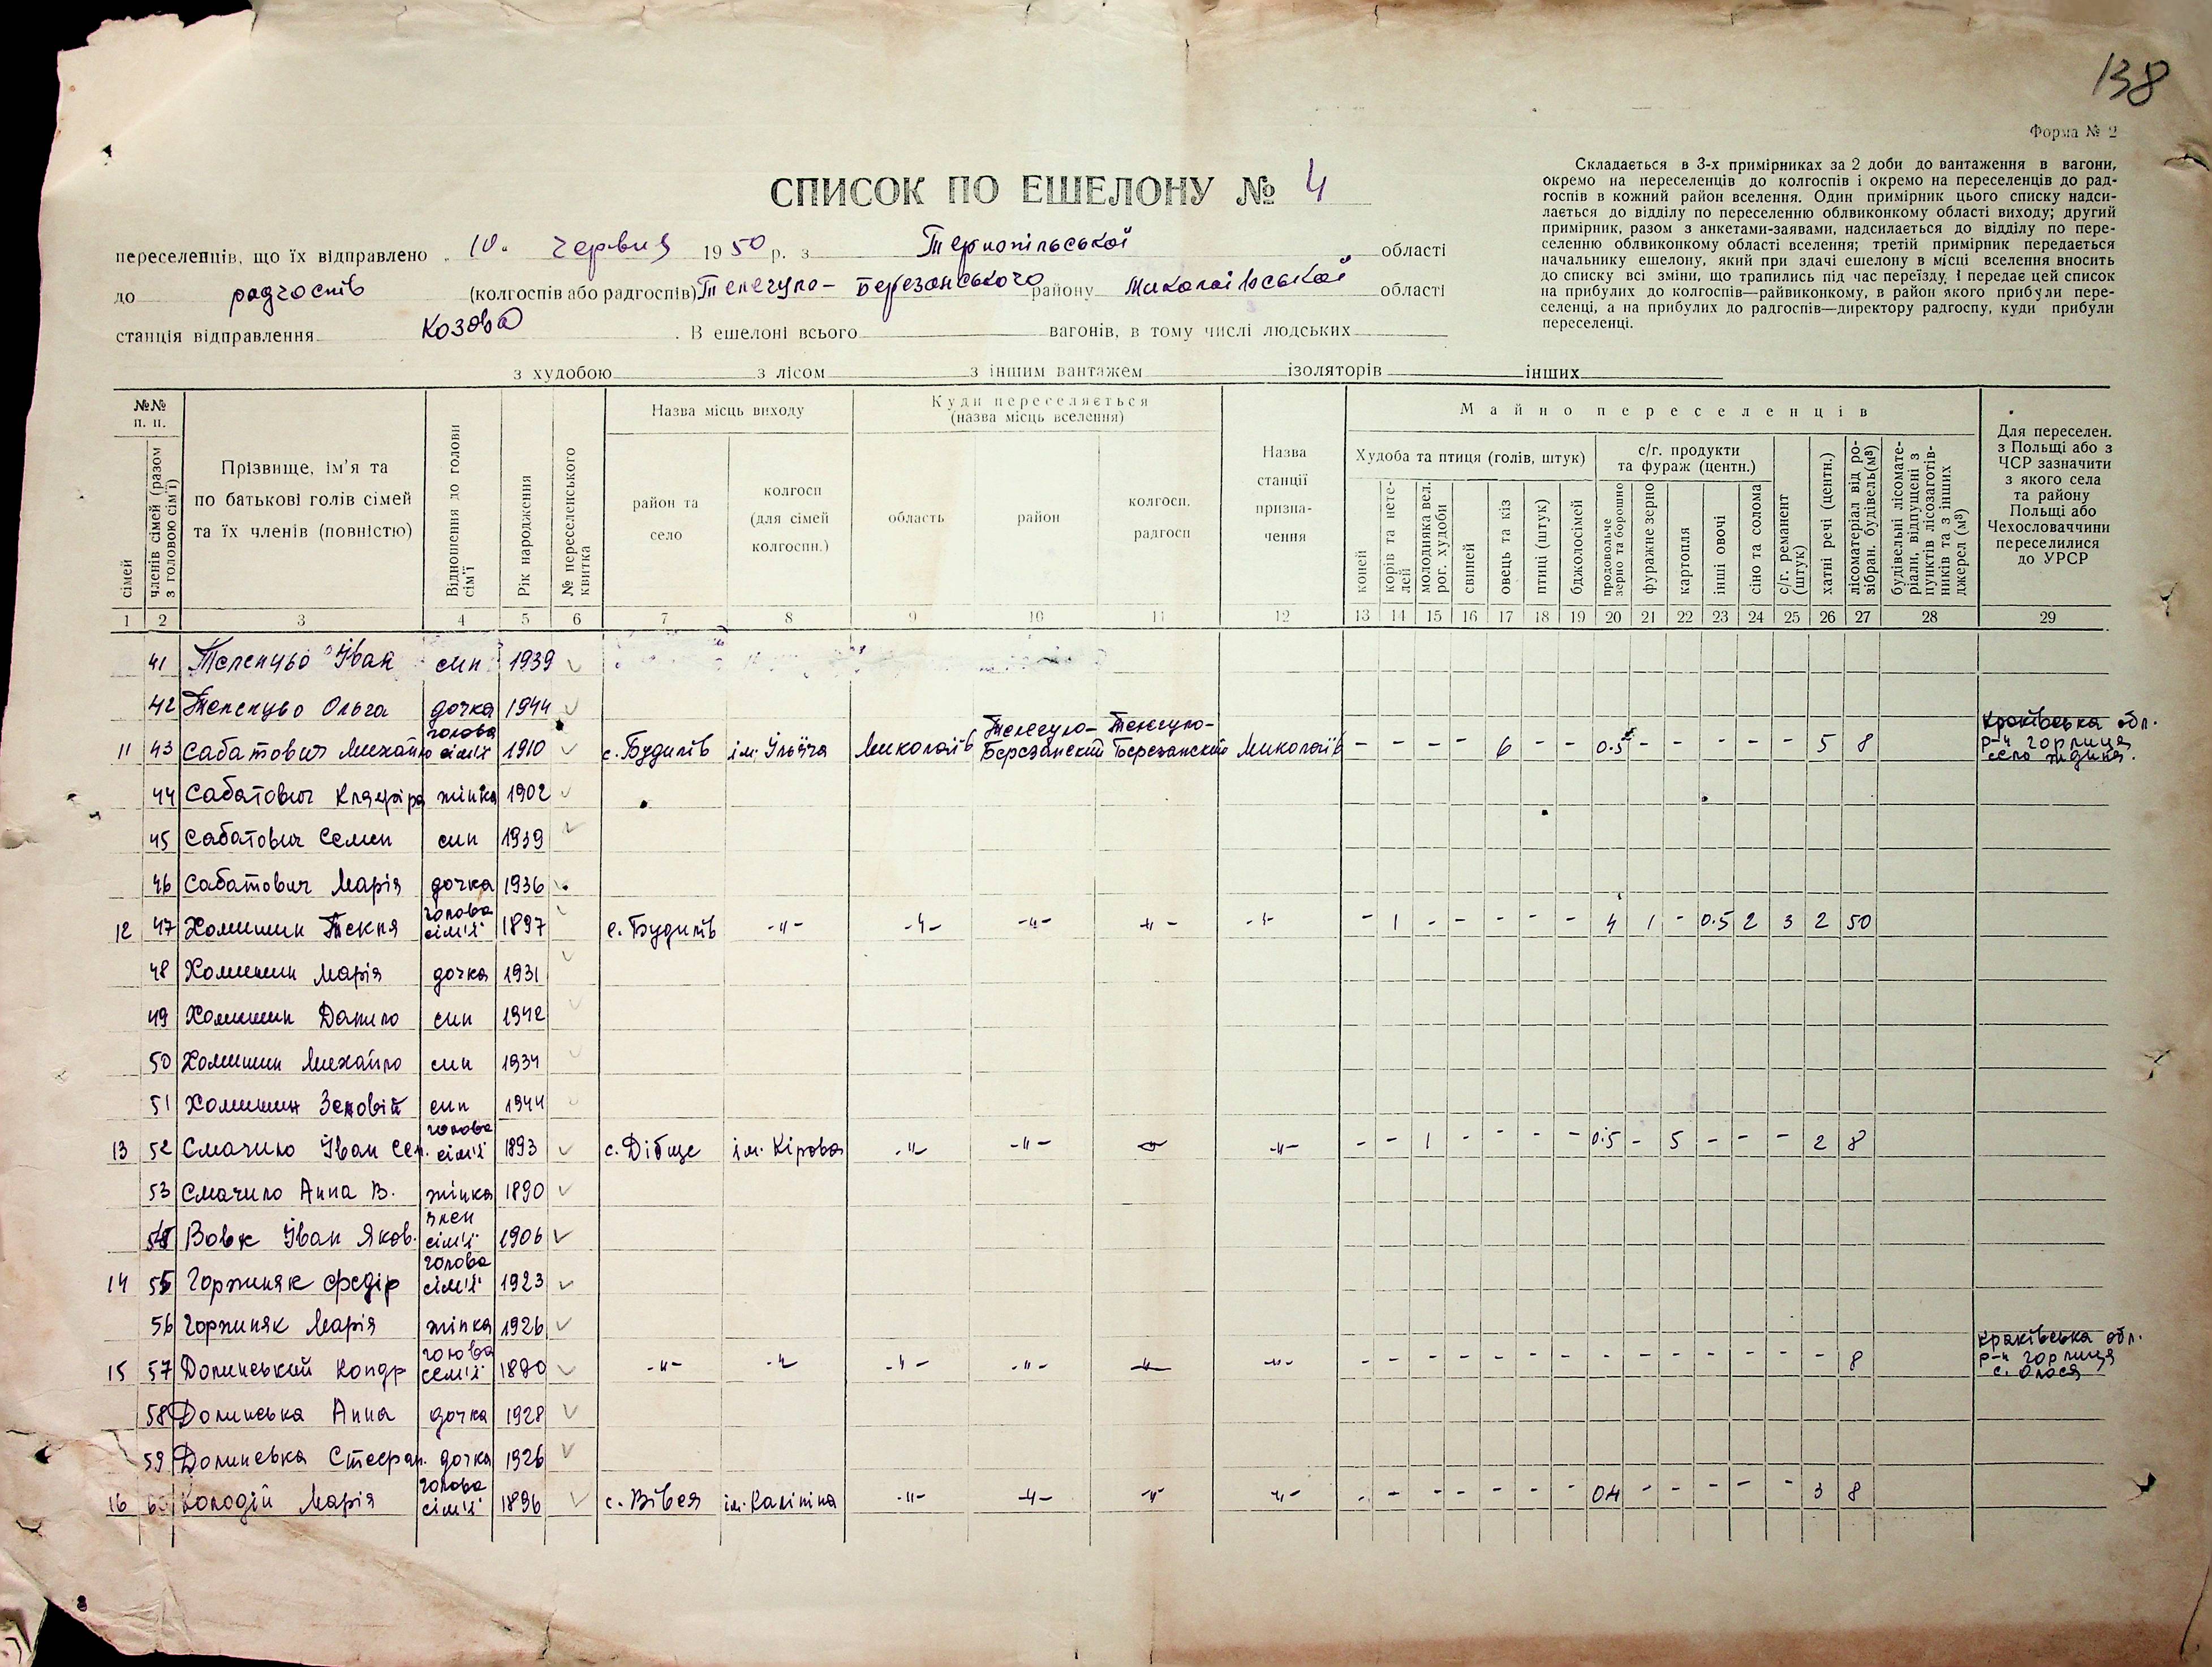 138
Форма № 2
СПИСОК ПО ЕШЕЛОНУ № 4
Складається в 3-х примірниках за 2 доби до вантаження в вагони,
окремо на переселенців до колгоспів і окремо на переселенців до рад-
госпів в кожний район вселення. Один примірник цього списку надси-
лається до відділу по переселенню облвиконкому області виходу; другий
примірник, разом з анкетами-заявами, надсилається до відділу по пере-
селенню облвиконкому області вселення; третій примірник передається
начальнику ешелону, який при здачі ешелону в місці вселення вносить
до списку всі зміни, що трапились під час переїзду, і передає цей список
на прибулих до колгоспів—райвиконкому, в район якого прибули пере-
селенці, а на прибулих до радгоспів—директору радгоспу, куди прибули
переселенці.
переселенців, що їх відправлено 10. червня 1950 р. з Тернопільської області
до радгоспів (колгоспів або радгоспів) Телегуло-Березанського району Миколаївської області
станція відправлення Козова. В ешелоні всього вагонів, в тому числі людських
з худобою з лісом з іншим вантажем ізоляторів інших
№№ п. п.
сімей
членів сімей (разом з головою сім'ї)
Прізвище, ім'я та по батькові голів сімей та їх членів (повністю)
Відношення до голови сім'ї
Рік народження
№ переселенського квитка
Назва місць виходу
район та село
колгосп (для сімей колгоспн.)
Куди переселяється (назва місць вселення)
область
район
колгосп. радгосп
Назва станції призна-чення
Майно переселенців
Худоба та птиця (голів, штук)
коней
корів та нете-лей
молодняка вел. рог. худоби
свиней
овець та кіз
птиці (штук)
бджолосімей
с/г. продукти та фураж (центн.)
продовольче зерно та борошно
фуражне зерно
картопля
інші овочі
сіно та солома
с/г. реманент (штук)
хатні речі (центн.)
лісоматеріал від ро-зібран. будівель (м³)
будівельні лісомате-ріали, відпущені з пунктів лісозаготів-ників та з інших джерел (м³)
Для переселен. з Польщі або з ЧСР зазначити з якого села та району Польщі або Чехословаччини переселилися до УРСР
1 2 3 4 5 6 7 8 9 10 11 12 13 14 15 16 17 18 19 20 21 22 23 24 25 26 27 28 29
41 Теленцьо Іван син 1939
42 Теленцьо Ольга дочка 1944
11 43 Сабатович Михайло голова сім'ї 1910 с. Будилів ім. Ілліча Миколаїв Телегуло-Березанский Телегуло-Березанский Миколаїв - - - - 6 - - 0.5 - - - - - 5 8 Краківська обл. р-н горлиця село ждиня.
44 Сабатович жінка 1902
45 Сабатович Семен син 1939
46 Сабатович Марія дочка 1936
12 47 Хомишин Текля голова сім'ї 1897 с. Будилів -"- -"- -"- -"- -"- - 1 - - - - - 4 1 - 0.5 2 3 2 50
48 Хомишин Марія дочка 1931
49 Хомишин Данило син 1942
50 Хомишин Михайло син 1934
51 Хомишин Зеновій син 1944
13 52 Смачило Іван Сем. голова сім'ї 1893 с. Дібще ім. Кірова -"- -"- -"- -"- - - 1 - - - - 0.5 - 5 - - - 2 8
53 Смачило Анна В. жінка 1890
54 Вовк Іван Яков. член сім'ї 1906
14 55 Горжиняк Федір голова сім'ї 1923
56 Горжиняк Марія жінка 1926
15 57 Долинський Кондр голова сем'ї 1890 -"- -"- -"- -"- -"- -"- - - - - - - - - - - - - - - 8 Краківська обл. р-н горлиця
58 Долинська Анна дочка 1928
59 Долинська Стефан. дочка 1926
16 60 Колодій Марія голова сім'ї 1896 с. Вівся ім. Калініна -"- -"- -"- -"- - - - - - - - 04 - - - - - 3 8